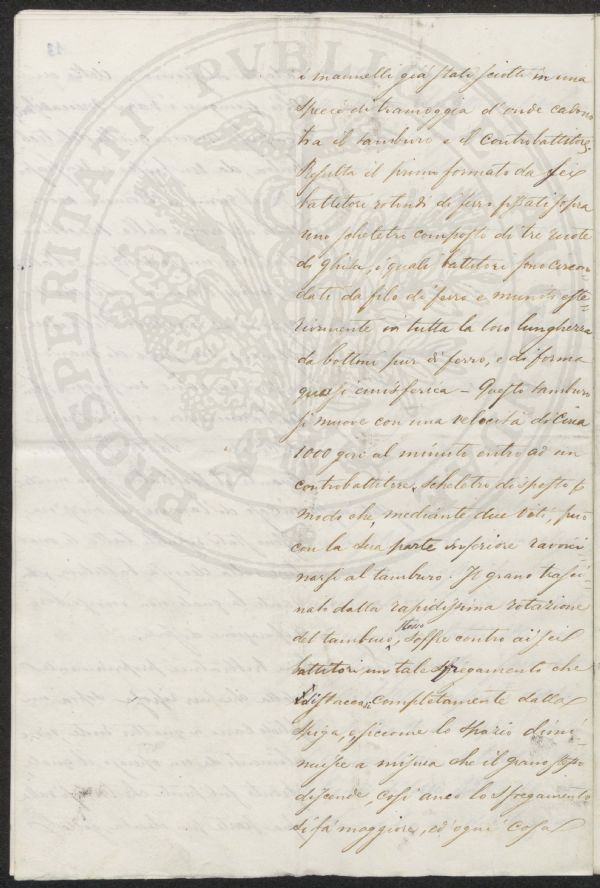 13
PROSPERITATI PVBLICAE
i mannelli già stati sciolti in una
specie di tramoggia d'onde cadono
tra il tamburo e il controbattitore.
Risulta il primo formato da sei
battitori rotondi di ferro fissati sopra
uno scheletro composto di tre ruote
di ghisa, i quali battitori sono circon
dati da filo di ferro e muniti este=
riormente in tutta la loro lunghezza
da bottoni pur di ferro, e di forma
quasi emisferica – Questo tamburo
si muove con una velocità di circa
1000 giri al minuto entro ad un
controbattitore, scheletro disposto p
modo che, mediante due viti, può
con la sua parte inferiore ravvici
narsi al tamburo. Il grano trasci=
nato dalla rapidissima rotazione
del tamburo stesso, soffre contro ai sei
battitori un tale sfregamento che
si distacca completamente dalla
spiga, e siccome lo spazio dimi=
nuisce a misura che il grano
discende, così anco lo sfregamento
si fà maggiore, ed ogni cosa